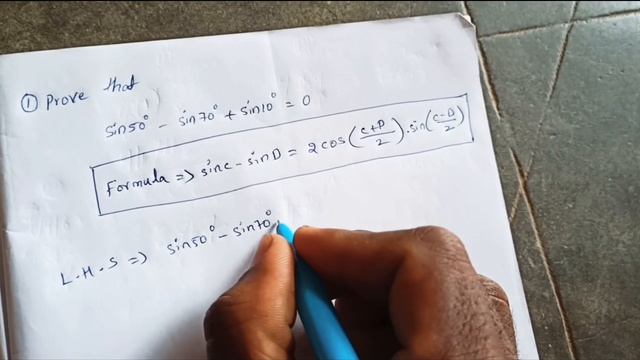 ① Prove that
sin50° - sin70° + sin10° = 0
Formula => sinC - sinD = 2cos(C+D/2).sin(C-D/2)
L.H.S => sin50° - sin70°